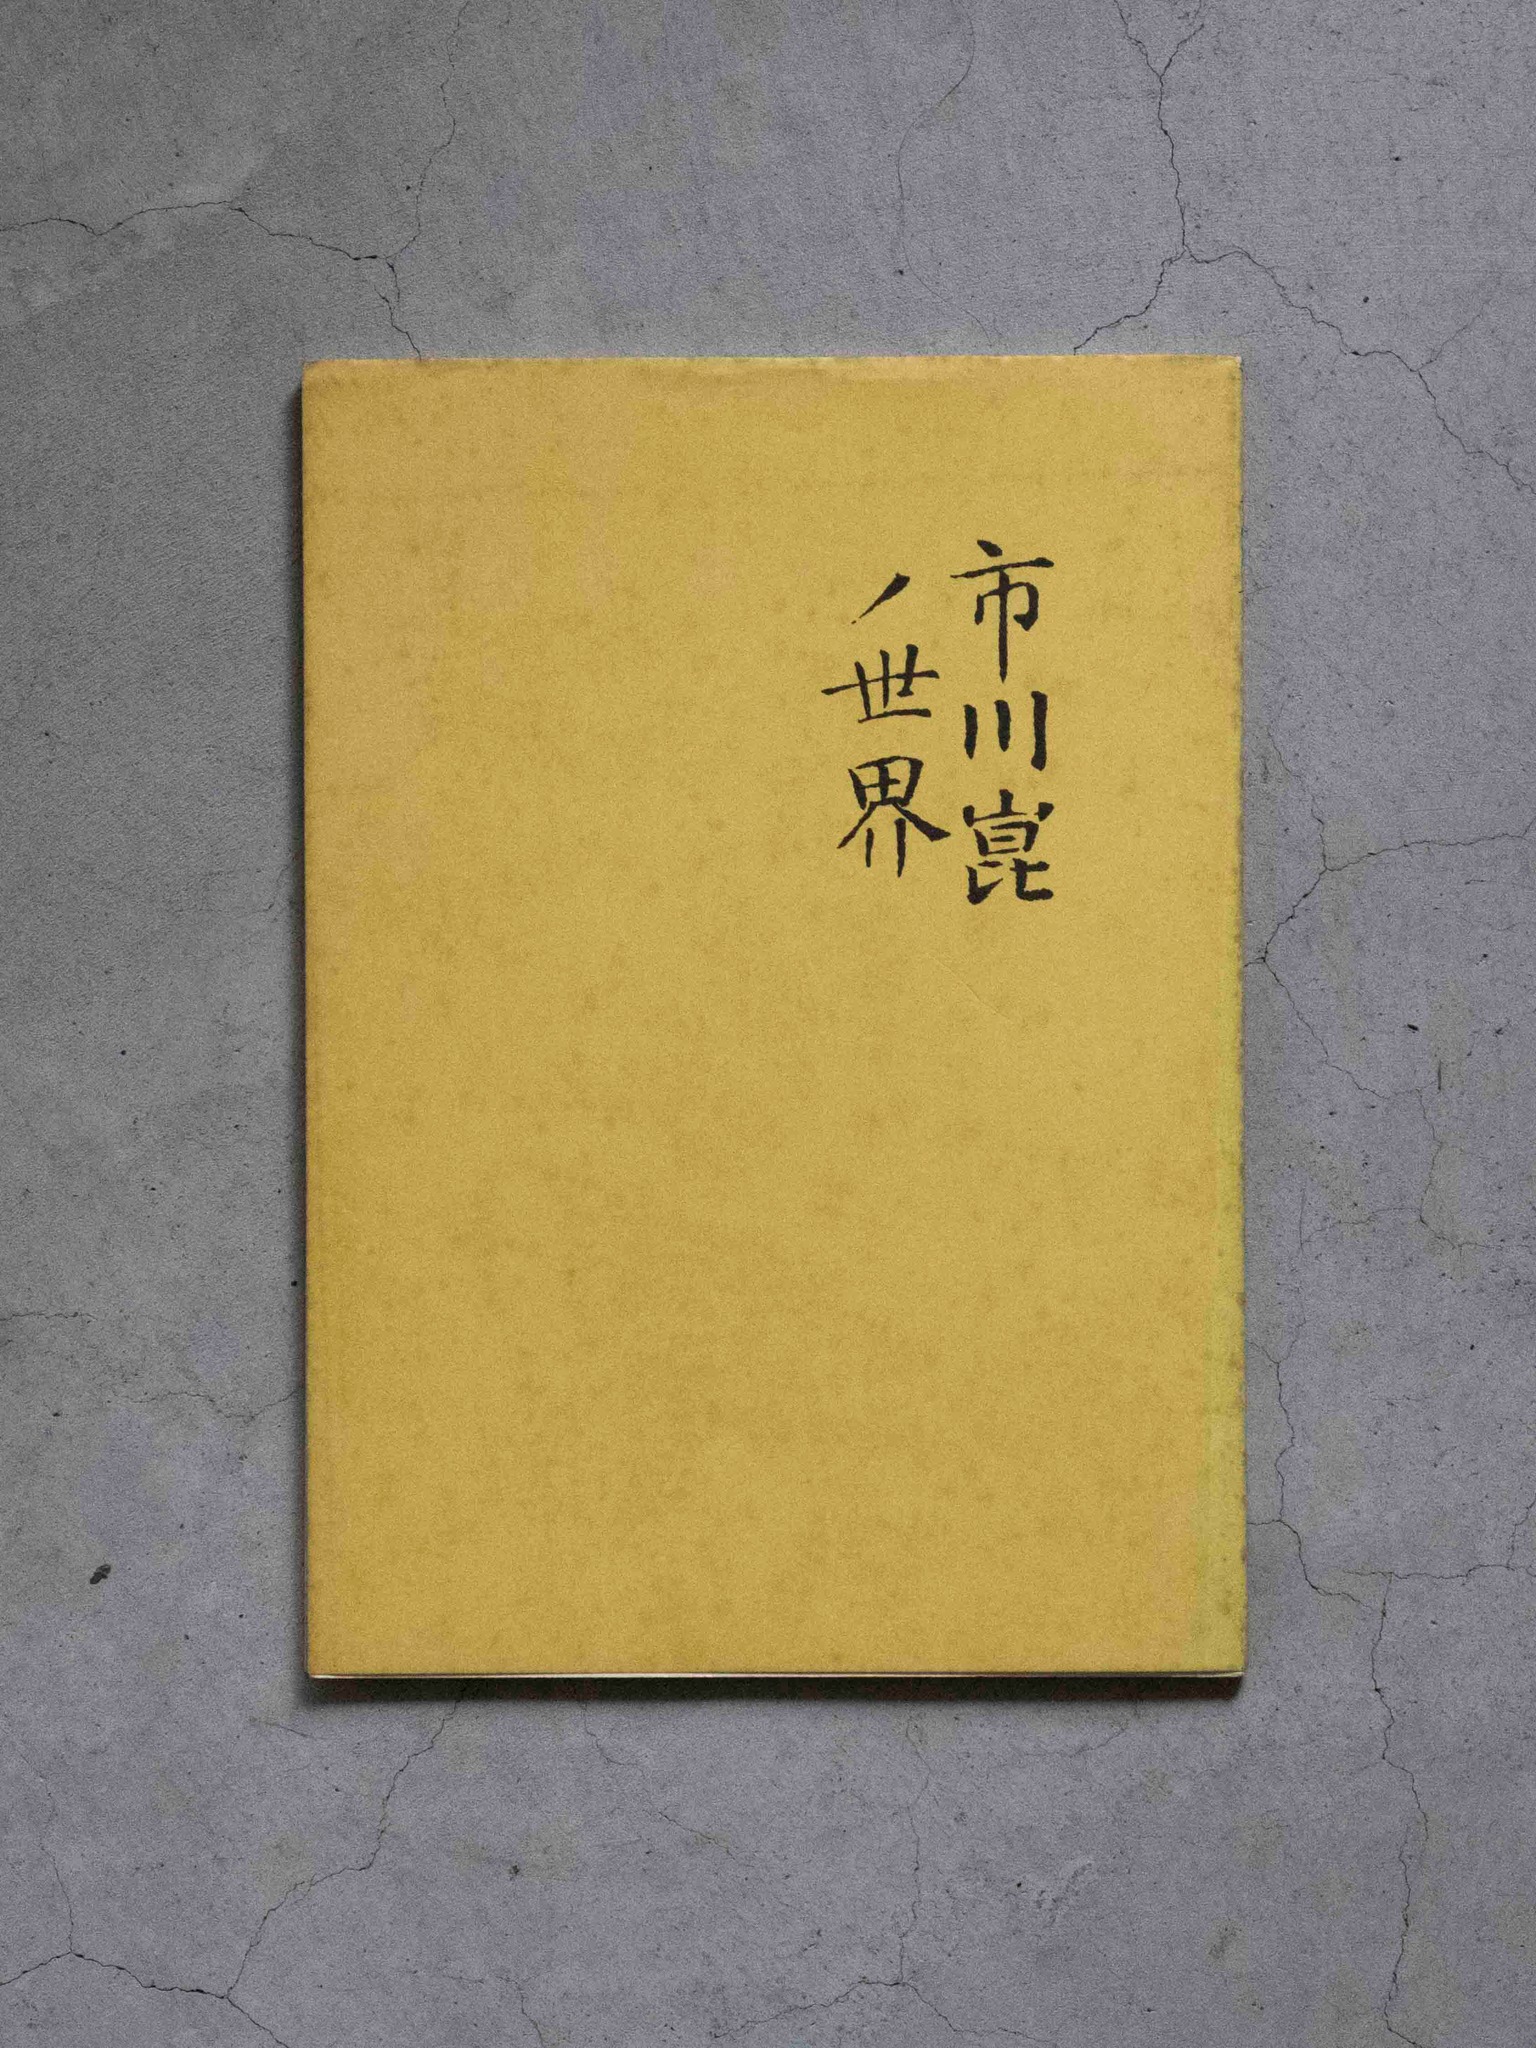 市川崑
ノ世界